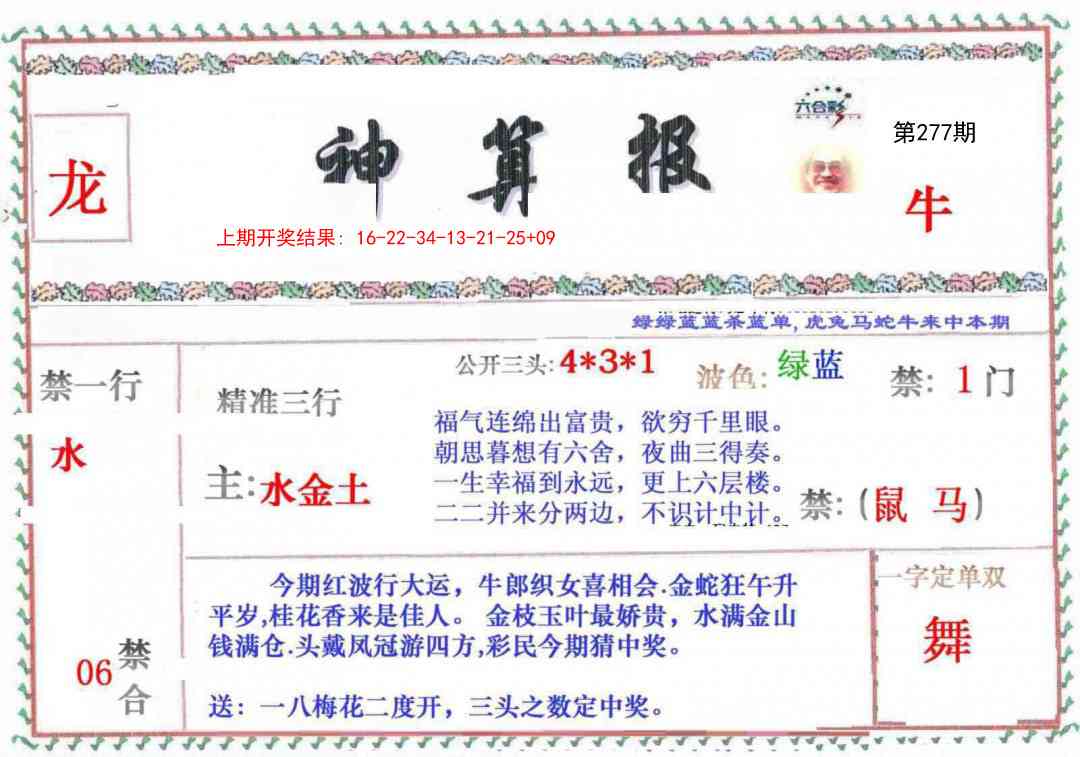 六合彩
第277期
龙
神算报
牛
上期开奖结果: 16-22-34-13-21-25+09
绿绿蓝蓝杀蓝单,虎兔马蛇牛来中本期
禁一行
水
精准三行
主:水金土
公开三头:4*3*1
波色:绿蓝
禁: 1门
福气连绵出富贵，欲穷千里眼。
朝思暮想有六舍，夜曲三得奏。
一生幸福到永远，更上六层楼。
二二并来分两边，不识计中计。
禁:(鼠 马)
今期红波行大运，牛郎织女喜相会.金蛇狂午升
平岁,桂花香来是佳人。 金枝玉叶最娇贵，水满金山
钱满仓.头戴凤冠游四方,彩民今期猜中奖。
送：一八梅花二度开，三头之数定中奖。
一字定单双
舞
06
禁合